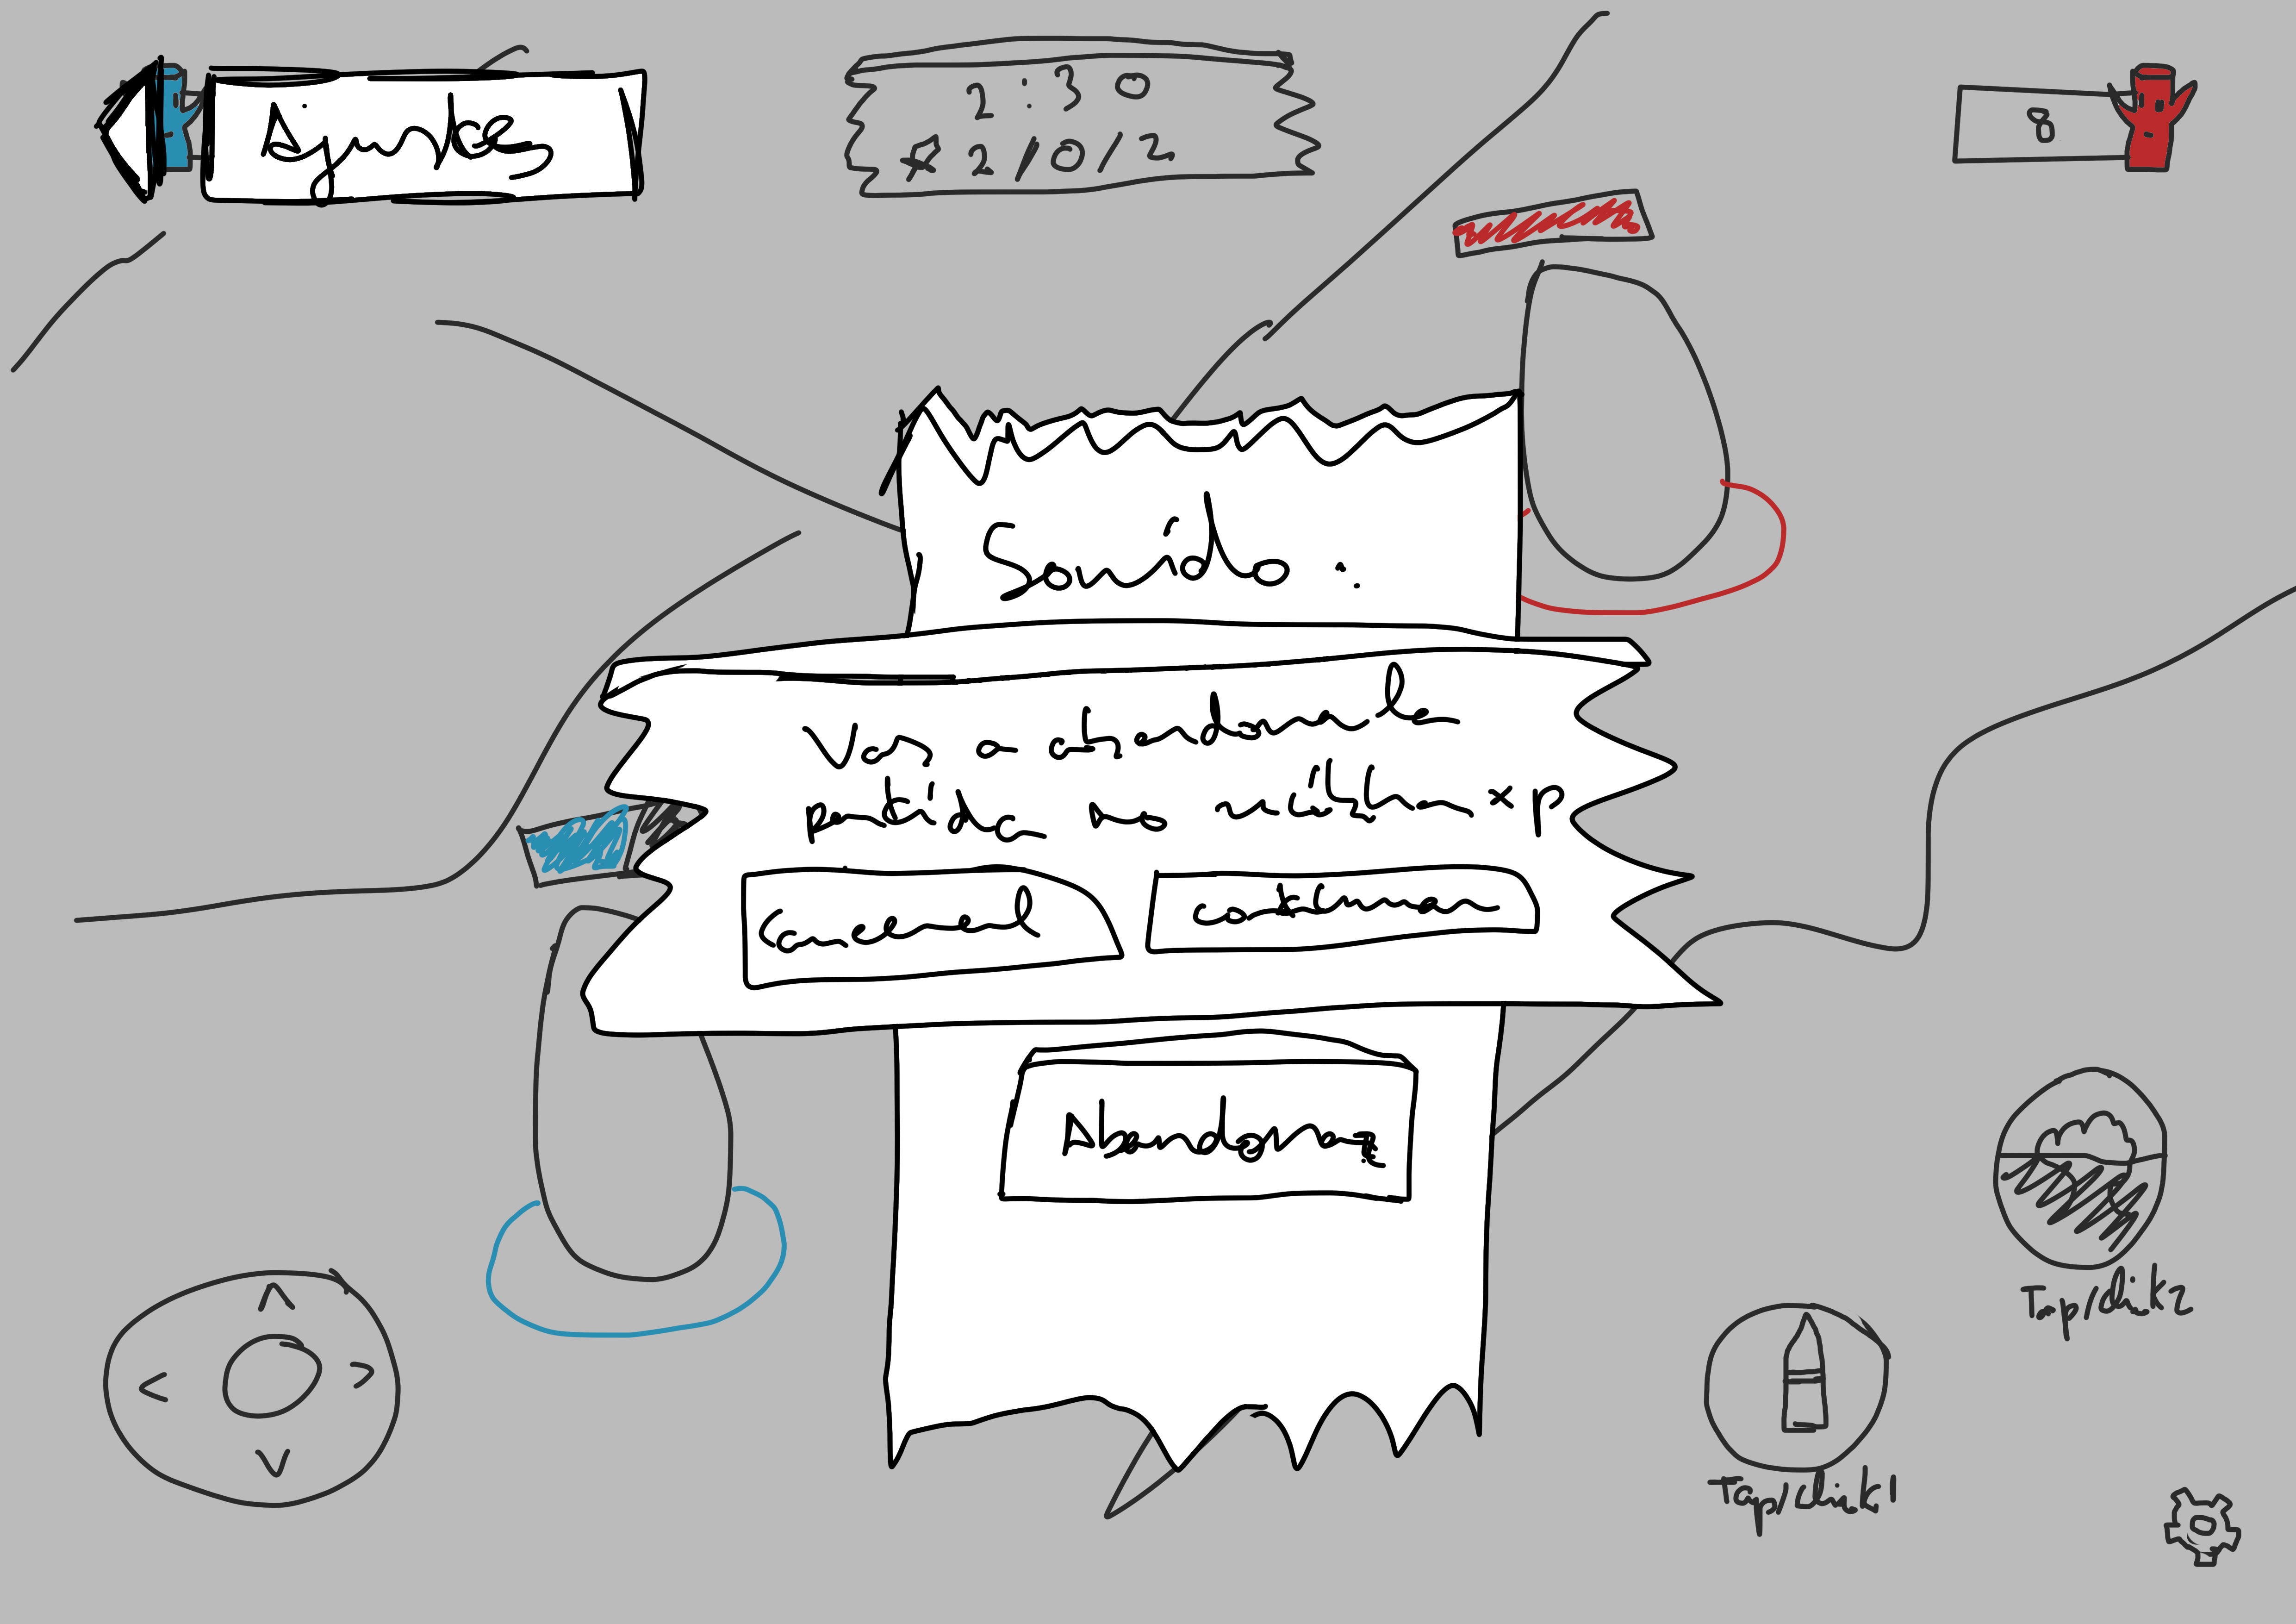 Ajustes
2:30
K 2/0/2
8
Sonido:
Vas a abandonar la
partida no recibiras xp
Cancelar
continuar
Abandonar
Tap/clik2
Tap/click1